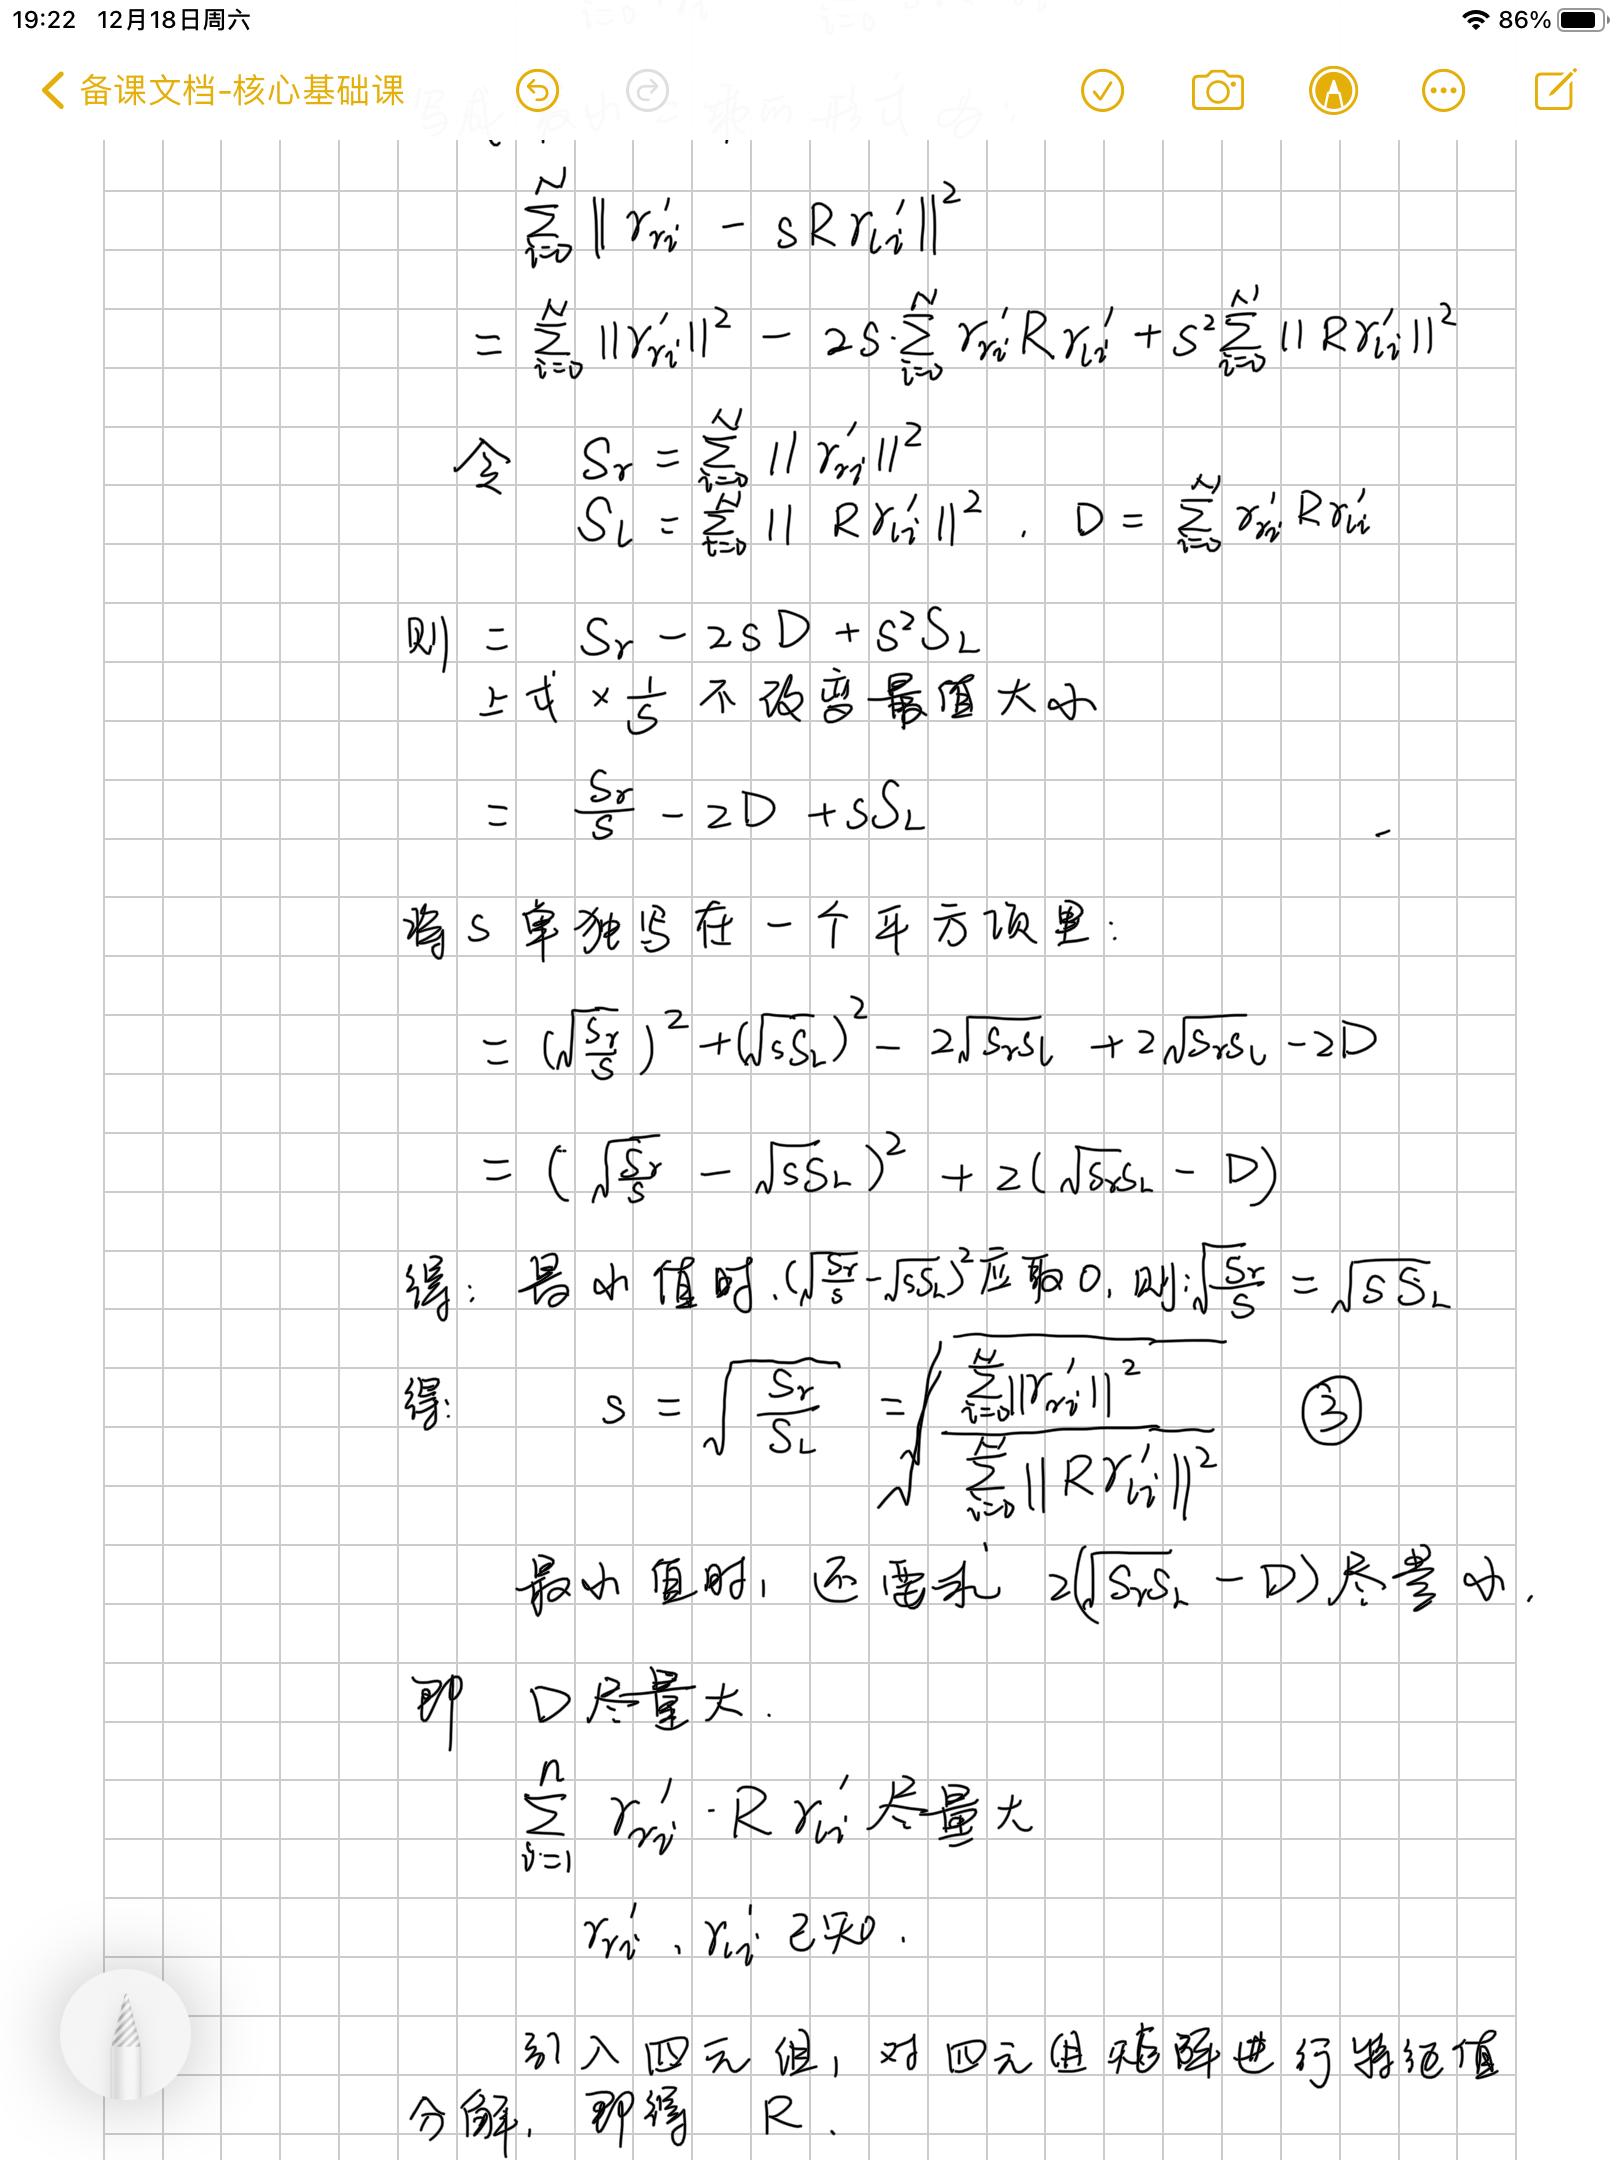 19:22 12月18日周六 86%
备课文档-核心基础课
写成最小二乘的形式为:
$\sum_{i=0}^{N} \| r_{ri}' - sRr_{li}' \|^2$
$= \sum_{i=0}^{N} \| r_{ri}' \|^2 - 2s \cdot \sum_{i=0}^{N} r_{ri}' R r_{li}' + s^2 \sum_{i=0}^{N} \| R r_{li}' \|^2$
令 $S_r = \sum_{i=0}^{N} \| r_{ri}' \|^2$
$S_L = \sum_{i=0}^{N} \| R r_{li}' \|^2 . \quad D = \sum_{i=0}^{N} r_{ri}' R r_{li}'$
则 $= S_r - 2sD + s^2 S_L$
上式 $\times \frac{1}{s}$ 不改变最值大小
$= \frac{S_r}{s} - 2D + sS_L$
将s单独写在一个平方项里:
$= (\sqrt{\frac{S_r}{s}})^2 + (\sqrt{sS_L})^2 - 2\sqrt{S_r S_L} + 2\sqrt{S_r S_L} - 2D$
$= (\sqrt{\frac{S_r}{s}} - \sqrt{sS_L})^2 + 2(\sqrt{S_r S_L} - D)$
得: 最小值时, $(\sqrt{\frac{S_r}{s}} - \sqrt{sS_L})^2$ 应取0, 则: $\sqrt{\frac{S_r}{s}} = \sqrt{sS_L}$
得: $s = \sqrt{\frac{S_r}{S_L}} = \sqrt{\frac{\sum_{i=0}^{N} \| r_{ri}' \|^2}{\sum_{i=0}^{N} \| R r_{li}' \|^2}}$ ③
最小值时, 还要求 $2(\sqrt{S_r S_L} - D)$ 尽量小.
即 D尽量大.
$\sum_{i=1}^{n} r_{ri}' \cdot R r_{li}'$ 尽量大
$r_{ri}'$、$r_{li}'$ 已知.
引入四元组, 对四元组矩阵进行特征值
分解, 即得 R.